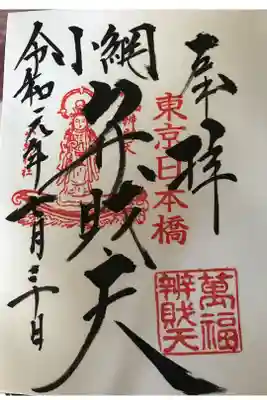 奉拝
東京日本橋
小網
弁財天
令和元年十月三十日
萬福
辨財天